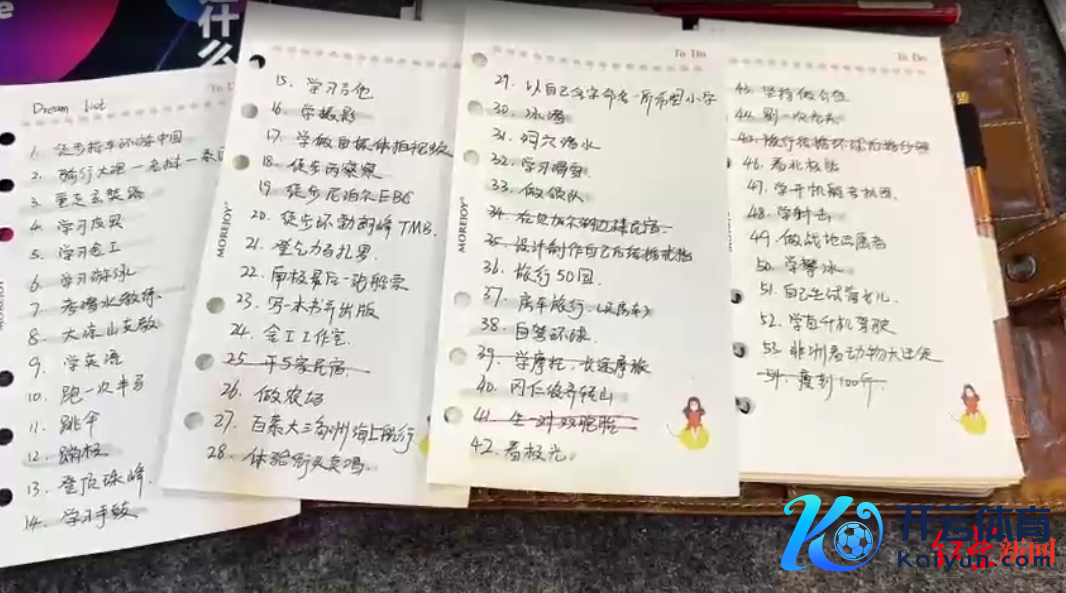 什么
To Do
Dream List
1. 徒步骑车环游中国
2. 骑行大理—老挝—泰国
3. 重走玄奘路
4. 学习皮具
5. 学习金工
6. 学习游泳
7. 考潜水教练
8. 大凉山支教
9. 学英语
10. 跑一次半马
11. 跳伞
12. 蹦极
13. 登顶珠峰
14. 学习手鼓
MOREJOY
15. 学习吉他
16. 学摄影
17. 学做自媒体拍视频
18. 徒步丙察察
19. 徒步尼泊尔EBC
20. 徒步环勃朗峰TMB
21. 登乞力马扎罗
22. 南极最后一张船票
23. 写一本书并出版
24. 金工工作室
25. 开5家民宿
26. 做农场
27. 百慕大三角洲海上航行
28. 体验街头卖唱
To Do
MOREJOY
29. 以自己名字命名一所希望小学
30. 冰潜
31. 洞穴潜水
32. 学习滑雪
33. 做领队
34. 在贝加尔湖边建民宿
35. 设计制作自己的结婚戒指
36. 旅行50国
37. 房车旅行(买房车)
38. 自驾环球
39. 学摩托,长途摩旅
40. 冈仁波齐转山
41. 生一对双胞胎
42. 看极光。
To Do
43. 坚持做公益
44. 剃一次光头
45. 旅行结婚环球拍婚纱照
46. 看北极熊
47. 学开帆船考执照
48. 学射击
49. 做战地志愿者
50. 学攀冰
51. 自己生试管女儿
52. 学直升机驾驶
53. 非洲看动物大迁徙
54. 瘦到100斤
开云体育
Kaiyun.com